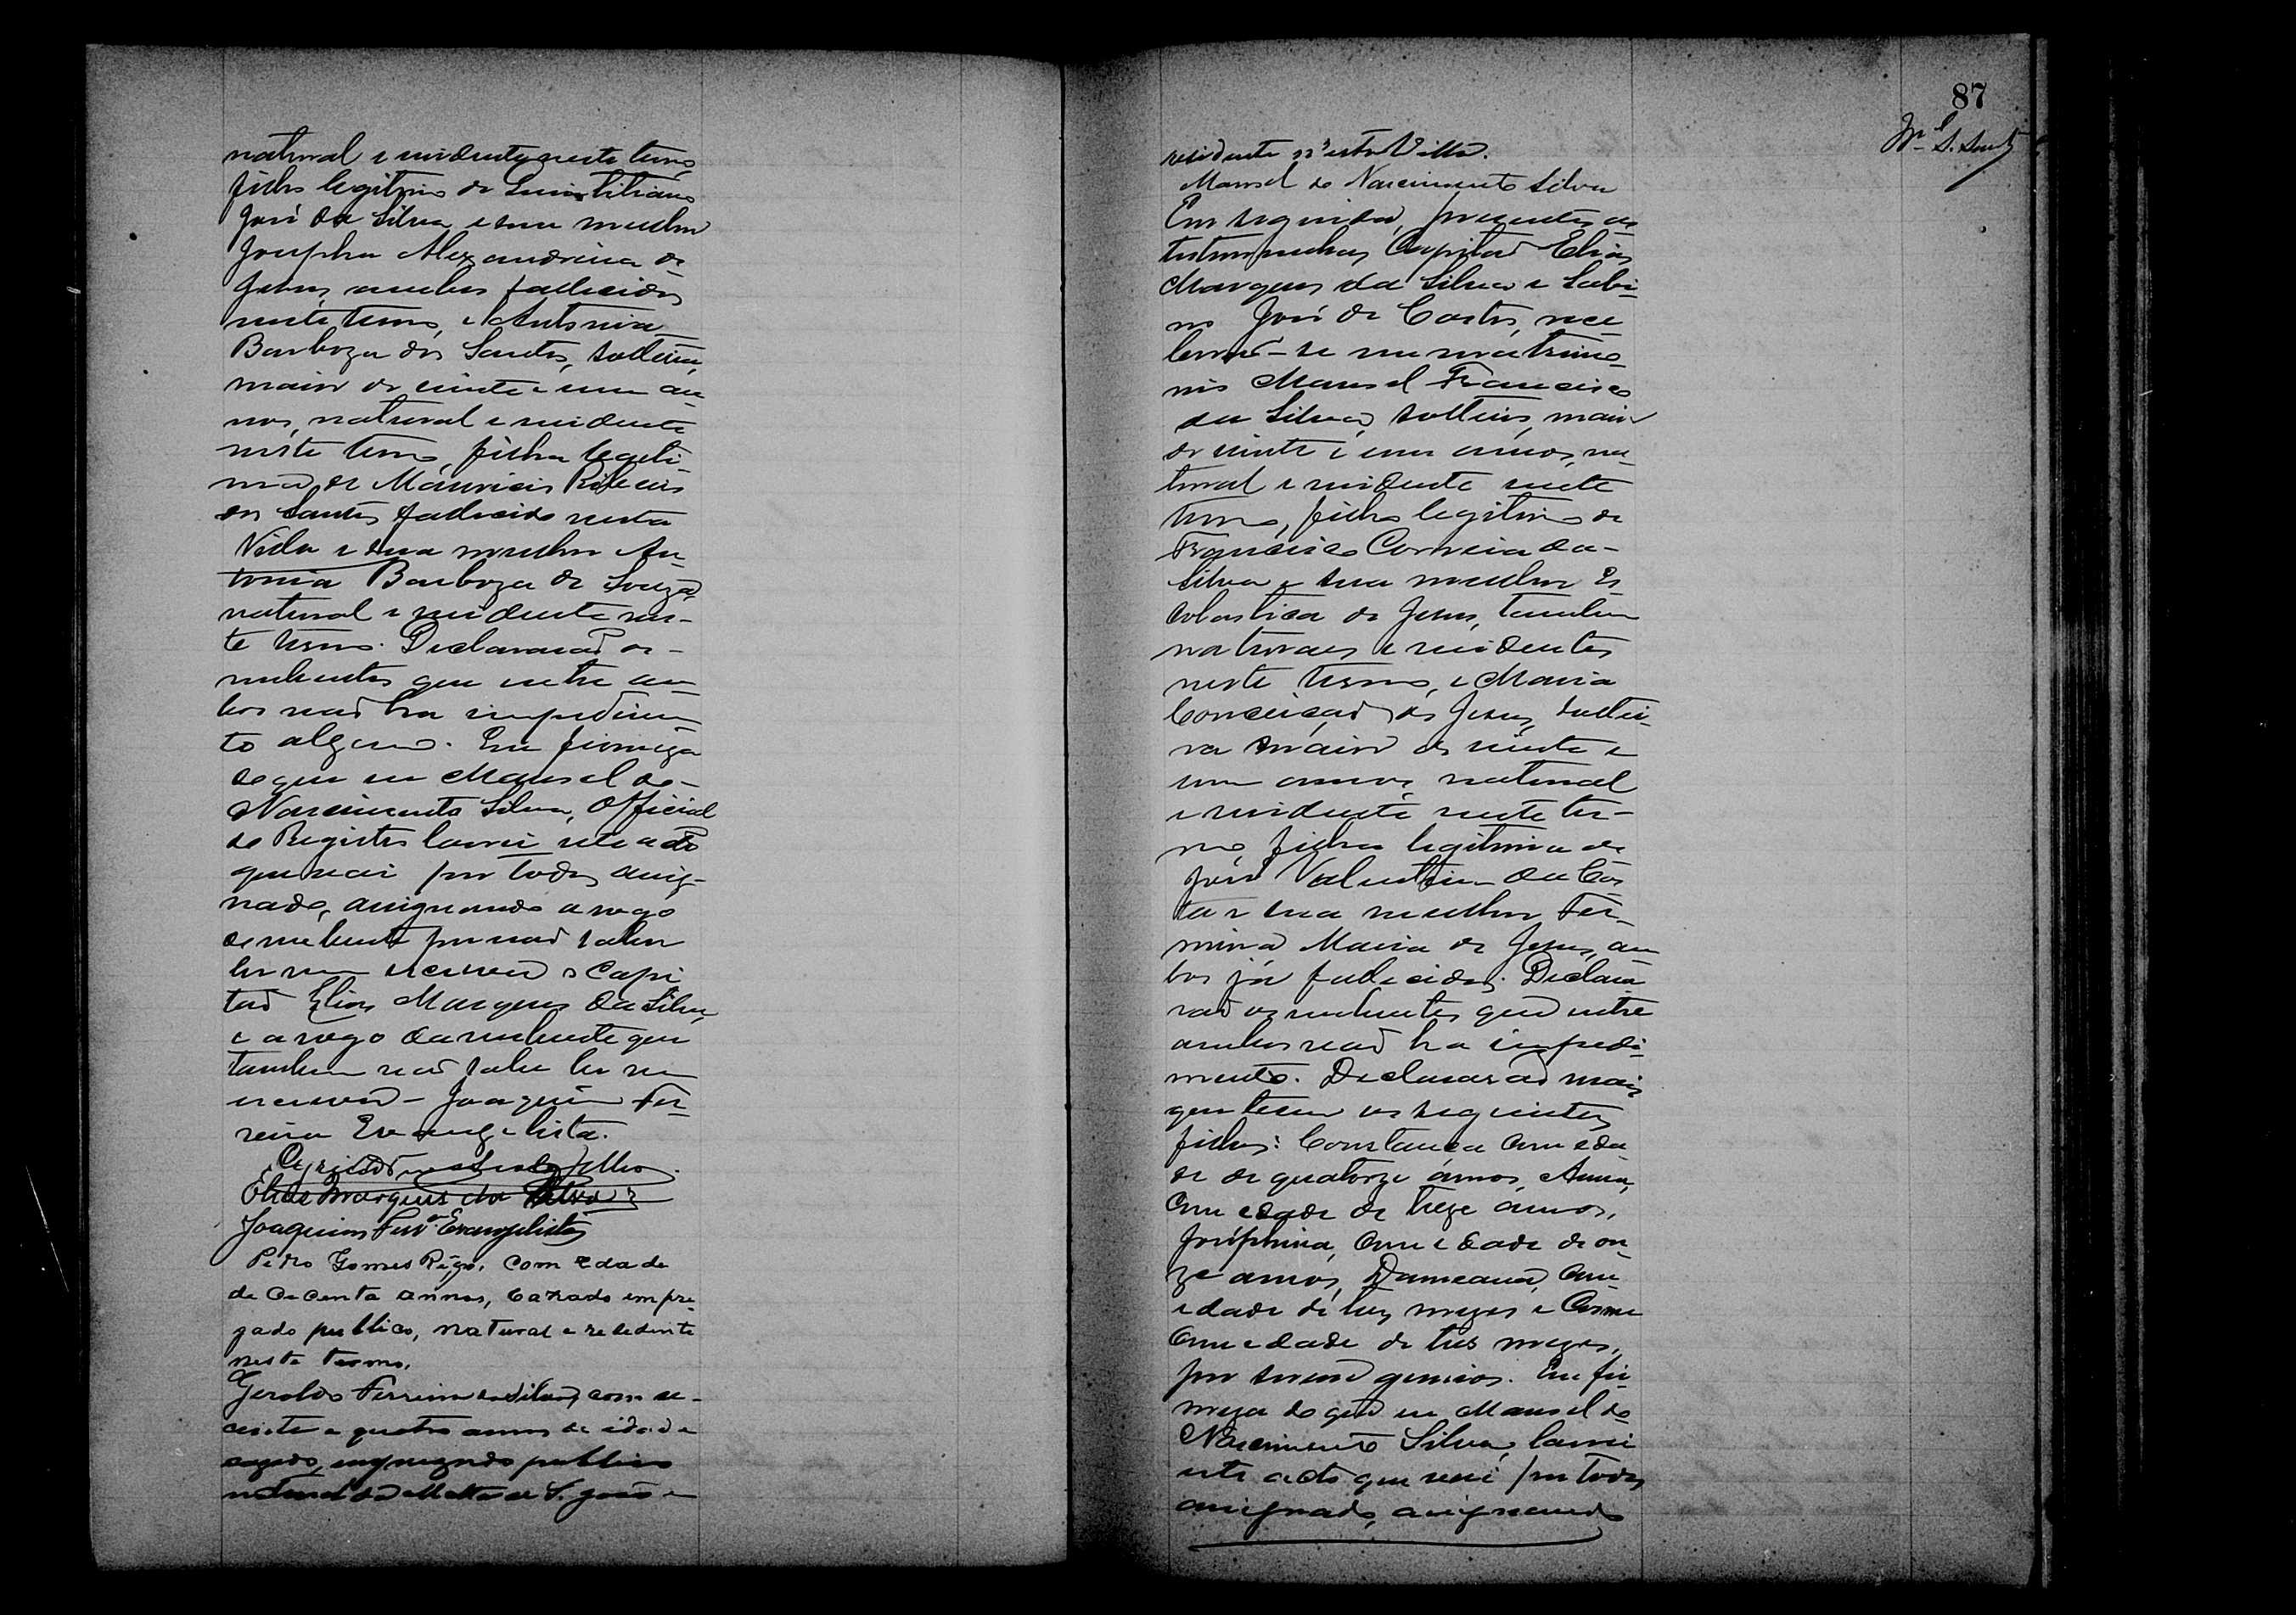 natural e residente neste termo,
filho legitimo de Quintiliano
José da Silva e sua mulher
Josepha Alexandrina de
Jesus, ambos fallecidos
neste termo, e Antonia
Barboza dos Santos, solteira,
maior de vinte e um an-
nos, natural e residente
neste termo, filha legiti-
ma de Mauricio Ribeiro
dos Santos fallecido nesta
Villa e sua mulher An-
tonia Barboza de Souza,
natural e residente nes-
te termo. Declararaõ os
nubentes que entre am-
bos naõ ha impedimen-
to algum. Em firmeza
do que eu Manoel do
Nascimento Silva, Official
do Registro lavrei este acto
que vai por todos assig-
nado, assignando a rogo
do nubente por naõ saber
ler nem escrever o Capi-
taõ Elias Marques da Silva,
e a rogo da nubente que
tambem naõ sabe ler nem
escrever - Joaquim Fer-
reira Evangelista.
Filho
Elias Marques da Silva
Joaquim Ferrª Evangelista
Pedro Gomes Rêgo, com edade
de cecenta annos, cazado empre-
gado publico, natural e rezidente
neste termo.
Geraldo Ferreira da Silva, com se-
centa e quatro annos de idade
cazado, empregado publico
natural da Matta de S. João e
87
residente n'esta Villa.
Manoel do Nascimento Silva
Em seguida, presentes as
testemunhas Capitaõ Elias
Marques da Silva e Sabi-
no José de Castro, rece-
beraõ-se em matrimo-
nio Manoel Francisco
da Silva, solteiro, maior
de vinte e um annos, na-
tural e residente neste
termo, filho legitimo de
Francisco Correia da
Silva e sua mulher Es-
colastica de Jesus, tambem
naturaes e residentes
neste termo, e Maria
Conceiçaõ de Jesus, soltei-
ra maior de vinte e
um annos, natural
e residente neste ter-
mo, filha legitima de
José Valentim da Cos-
ta e sua mulher Fer-
mina Maria de Jesus, am-
bos já fallecidos. Declara-
raõ os nubentes que entre
ambos naõ ha impedi-
mento. Declararaõ mais
que tem os seguintes
filhos: Constança com eda-
de de quatorze annos, Anna,
com edade de treze annos,
Josephina, com edade de on-
ze annos, Dameana, com
edade de tres mezes e Cosme
com edade de tres mezes,
por serem gemeos. Em fir-
meza do que eu Manoel do
Nascimento Silva, lavrei
este acto que vai por todos
assignado, assignando